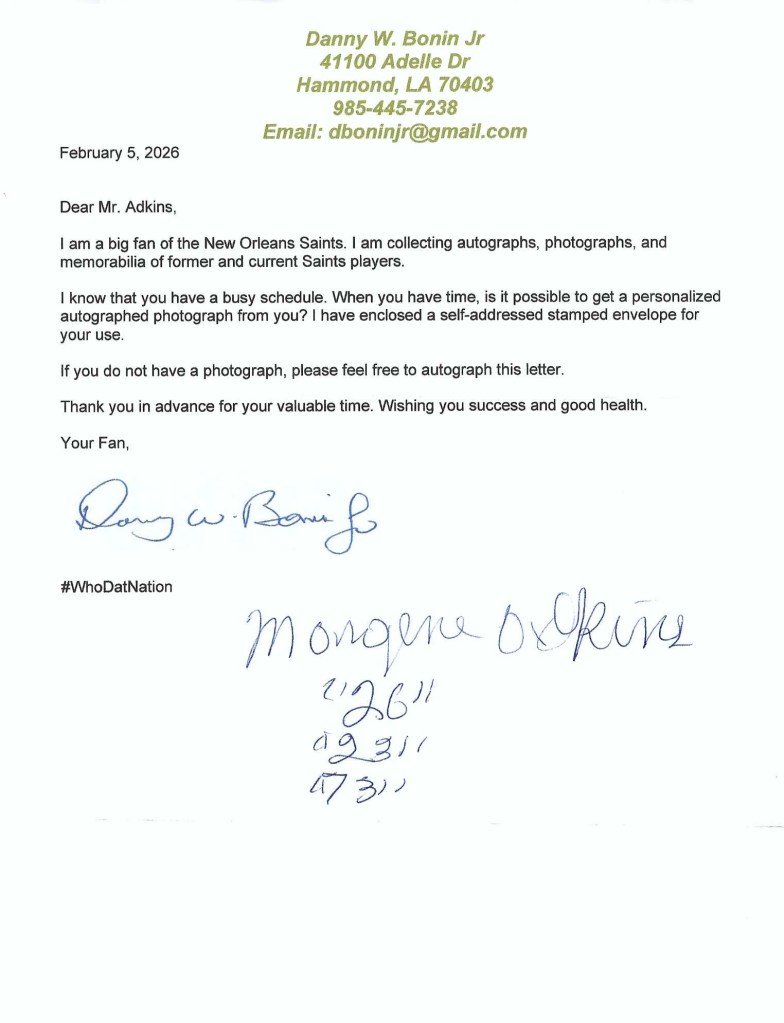 Danny W. Bonin Jr
41100 Adelle Dr
Hammond, LA 70403
985-445-7238
Email: dboninjr@gmail.com
February 5, 2026
Dear Mr. Adkins,
I am a big fan of the New Orleans Saints. I am collecting autographs, photographs, and
memorabilia of former and current Saints players.
I know that you have a busy schedule. When you have time, is it possible to get a personalized
autographed photograph from you? I have enclosed a self-addressed stamped envelope for
your use.
If you do not have a photograph, please feel free to autograph this letter.
Thank you in advance for your valuable time. Wishing you success and good health.
Your Fan,
Danny W. Bonin Jr
#WhoDatNation
Margene Adkins
"26"
"23"
"73"